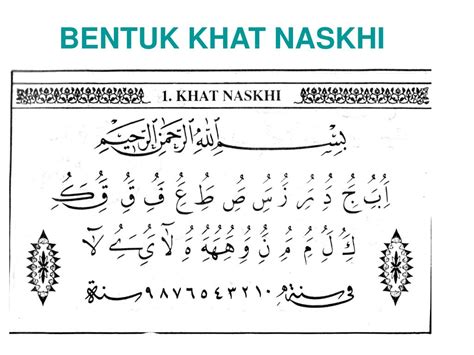 BENTUK KHAT NASKHI
1. KHAT NASKHI
بِسْمِ اللهِ الرَّحْمٰنِ الرَّحِيْمِ
أُبُ جُ دُ رُ زُ سُ صُ طُ عُ فُ قُ قُ كُ
كُ لُ مُ مُ نُ وُ هُهُهُ هُ لَا يُ ےُ لَا
في سنة ٩٨٧٦٥٤٣٢١٠ سنة